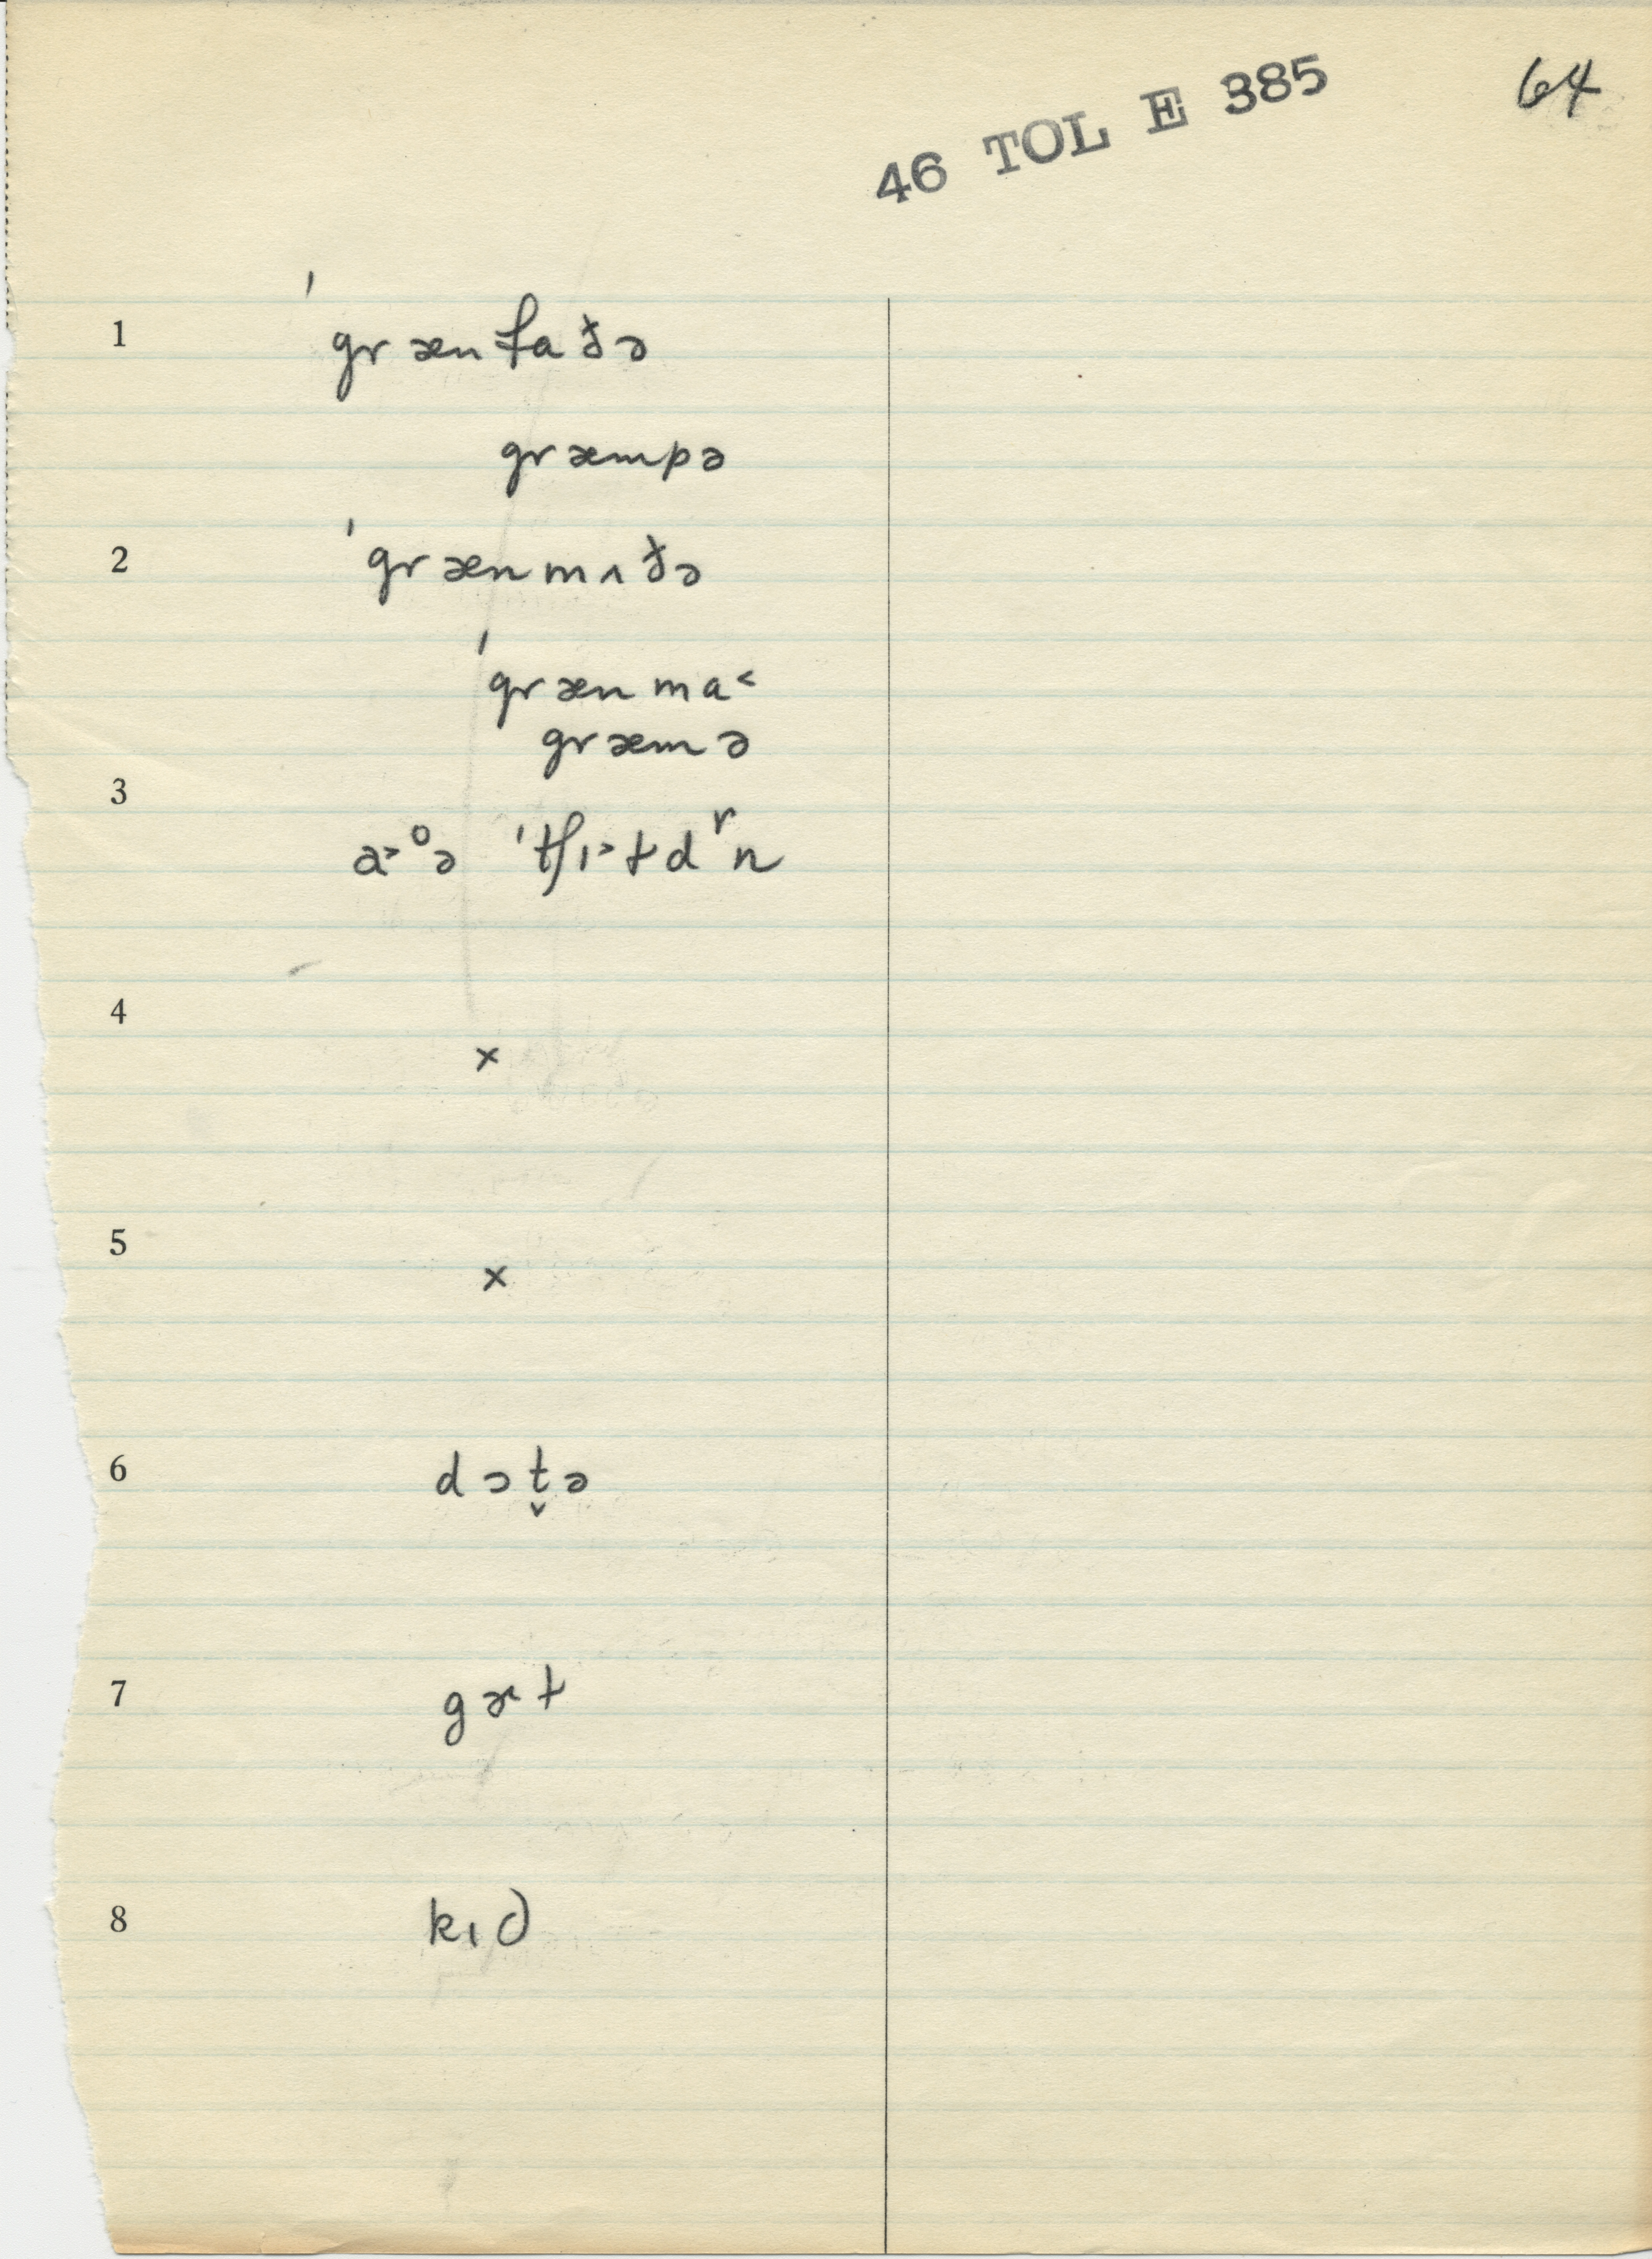 46 TOL E 385
64
1
ˈgrænfaðə
græmpə
2
ˈgrænmʌðə
ˈgrænma˂
græmə
3
a˃ᵒə ˈtʃɪ˃ɫdʳn
4
×
5
×
6
dɔt̬ə
7
gɝɫ
8
kɪd